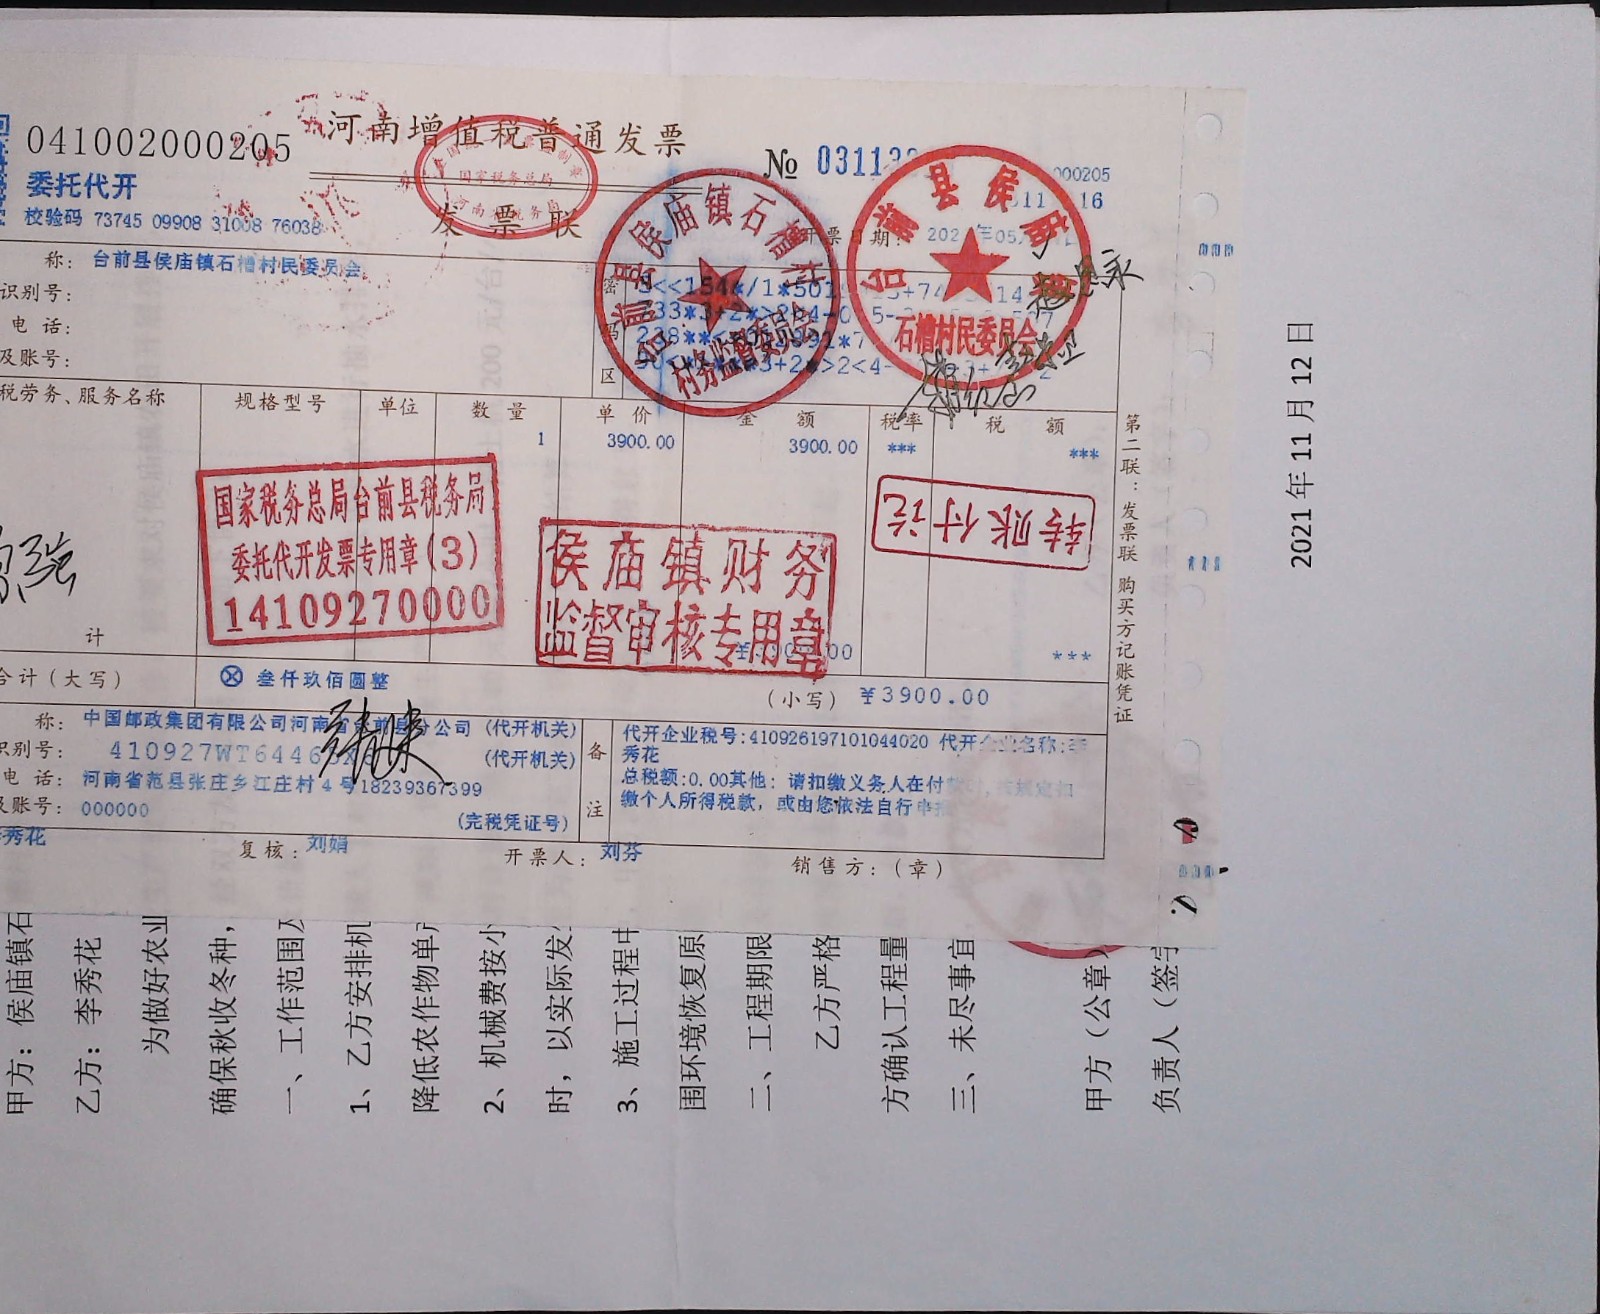 041002000205
河南增值税普通发票
№ 031132
000205
委托代开
国家税务总局
河南省税务局
发票联
校验码 73745 09908 31008 76038
开票日期:
称: 台前县侯庙镇石槽村民委员会
识别号:
电 话:
及账号:
密
码
区
台前县侯庙镇石槽村
村务监督委员会
台前县侯庙镇
石槽村民委员会
税劳务、服务名称 规格型号 单位 数 量 单 价 金 额 税率 税 额
1 3900.00 3900.00 *** ***
国家税务总局台前县税务局
委托代开发票专用章(3)
14109270000
侯庙镇财务
监督审核专用章
转账付讫
计
***
合计(大写) ⊗ 叁仟玖佰圆整 (小写) ¥3900.00
称: 中国邮政集团有限公司河南省台前县分公司 (代开机关)
识别号: 410927WT6446 (代开机关)
电 话: 河南省范县张庄乡江庄村4号18239367399
及账号: 000000 (完税凭证号)
备
注
代开企业税号:410926197101044020 代开企业名称:李
秀花
总税额:0.00其他: 请扣缴义务人在付款时,依规定扣
缴个人所得税款, 或由您依法自行申报
秀花 复核: 刘娟 开票人: 刘芬 销售方:(章)
第二联:发票联 购买方记账凭证
甲方: 侯庙镇石
乙方: 李秀花
为做好农业
确保秋收冬种,
一、工作范围及
1、乙方安排机
降低农作物单产
2、机械费按小
时, 以实际发生
3、施工过程中
围环境恢复原
二、工程期限
乙方严格
方确认工程量
三、未尽事宜
甲方(公章)
负责人(签字
2021 年 11 月 12 日